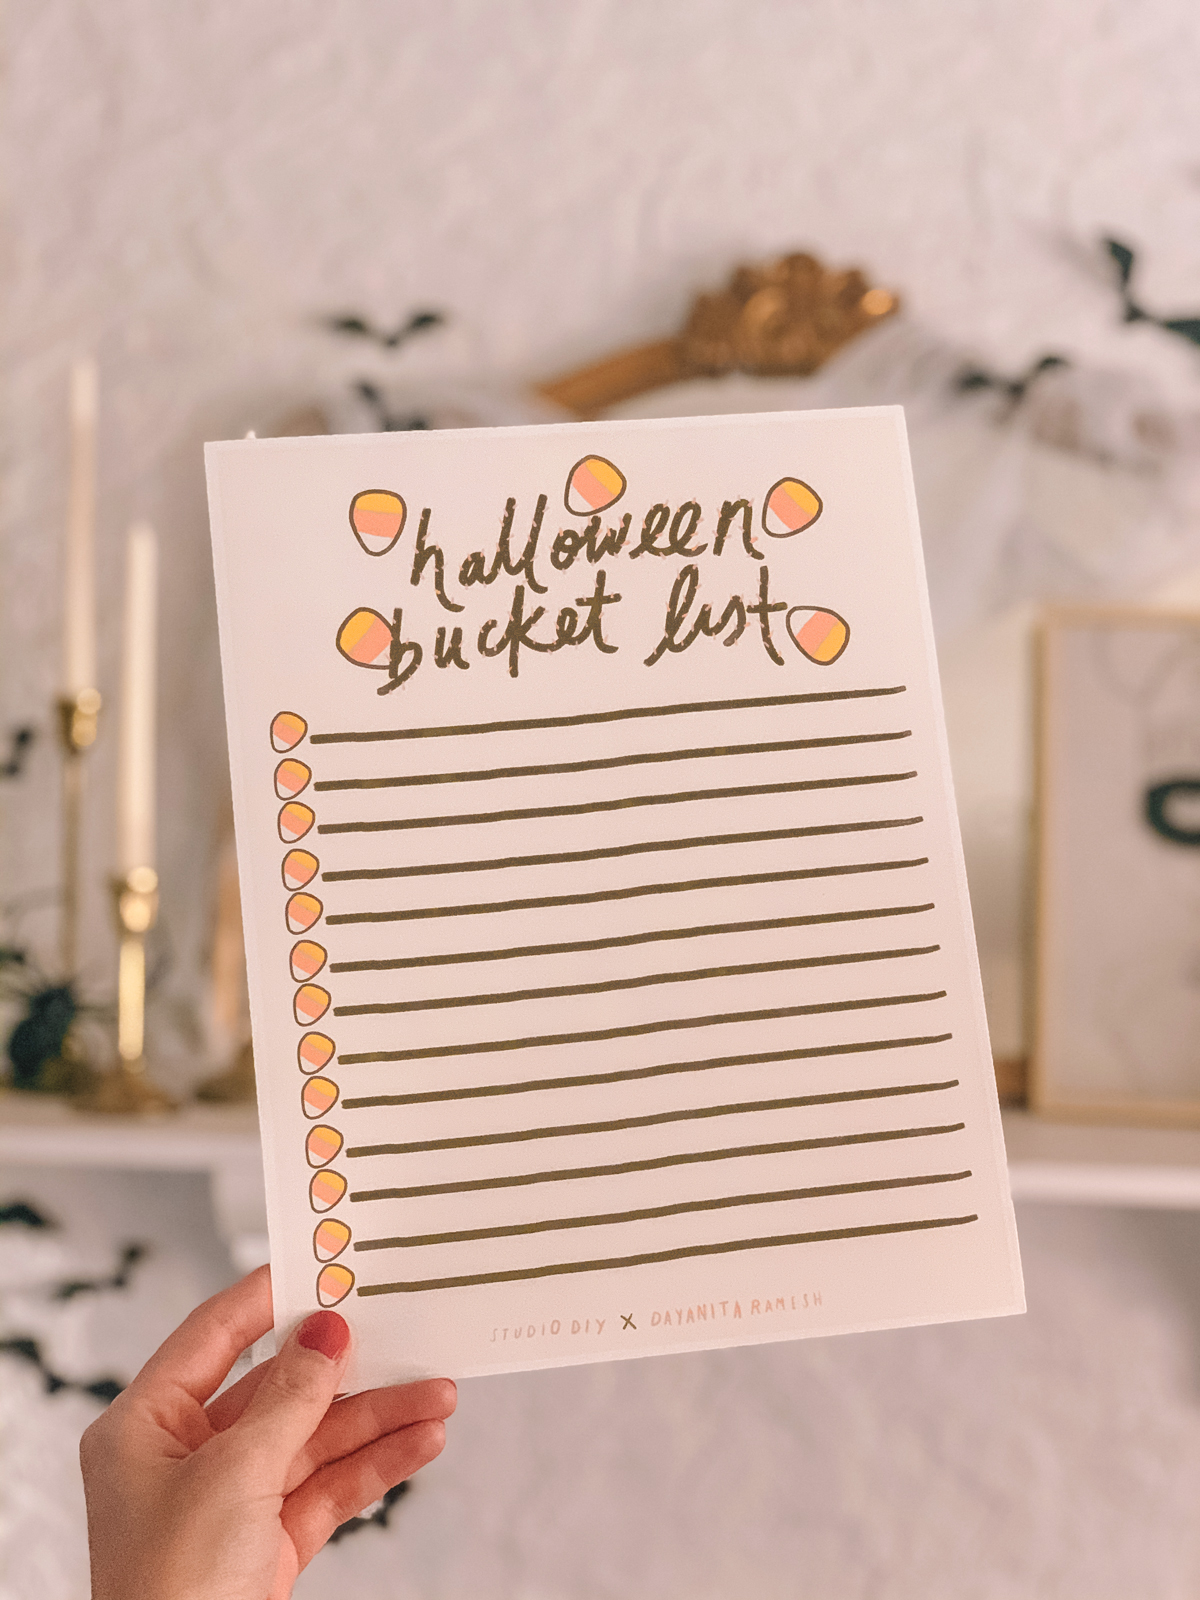 halloween
bucket list
STUDIO DIY X DAYANITA RAMESH